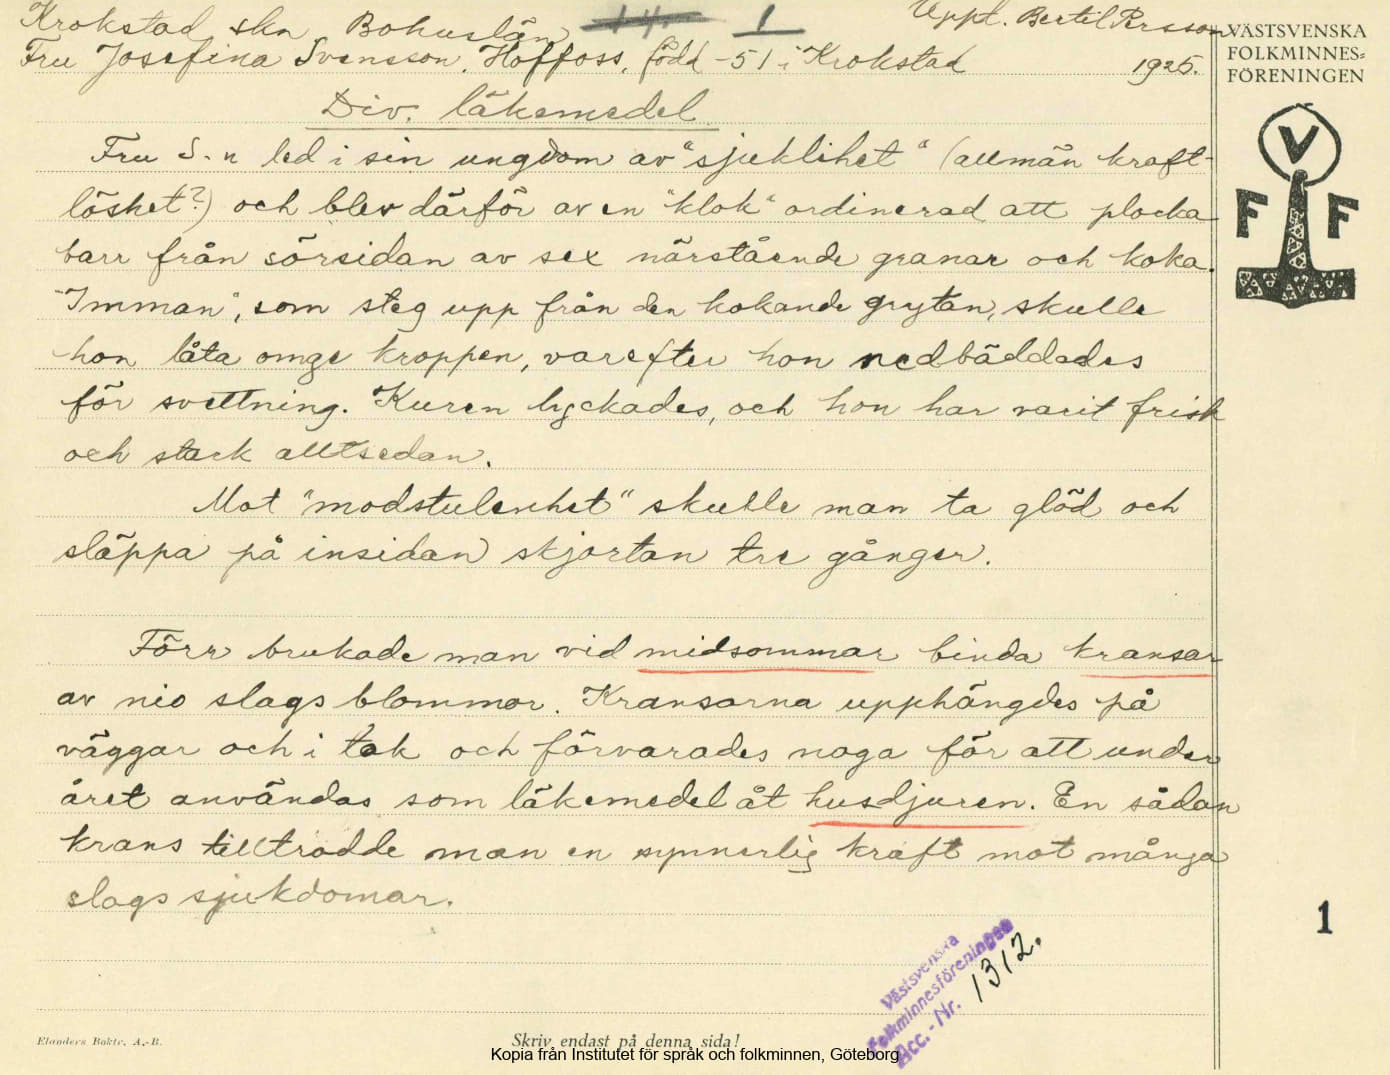 Krokstad skn Bohuslän 14. 1 Uppt. Bertil Persson
Fru Josefina Svensson, Hoffoss, född -51 i Krokstad 1925.
VÄSTSVENSKA
FOLKMINNES-
FÖRENINGEN
V
F F
Div. läkemedel
Fru S-n led i sin ungdom av "sjuklihet" (allmän kraft-
löshet?) och blev därför av en "klok" ordinerad att plocka
barr från sörsidan av sex närstående granar och koka.
"Imman", som steg upp från den kokande grytan, skulle
hon låta omge kroppen, varefter hon nedbäddades
för svettning. Kuren lyckades, och hon har varit frisk
och stark alltsedan.
Mot "modstulenhet" skulle man ta glöd och
släppa på insidan skjortan tre gånger.
Förr brukade man vid midsommar binda kransar
av nio slags blommor. Kransarna upphängdes på
väggar och i tak och förvarades noga för att under
året användas som läkemedel åt husdjuren. En sådan
krans tilltrodde man en synnerlig kraft mot många
slags sjukdomar.
1
Västsvenska
Folkminnesföreningen
Acc.-Nr. 1312.
Elanders Boktr. A.-B.
Skriv endast på denna sida!
Kopia från Institutet för språk och folkminnen, Göteborg